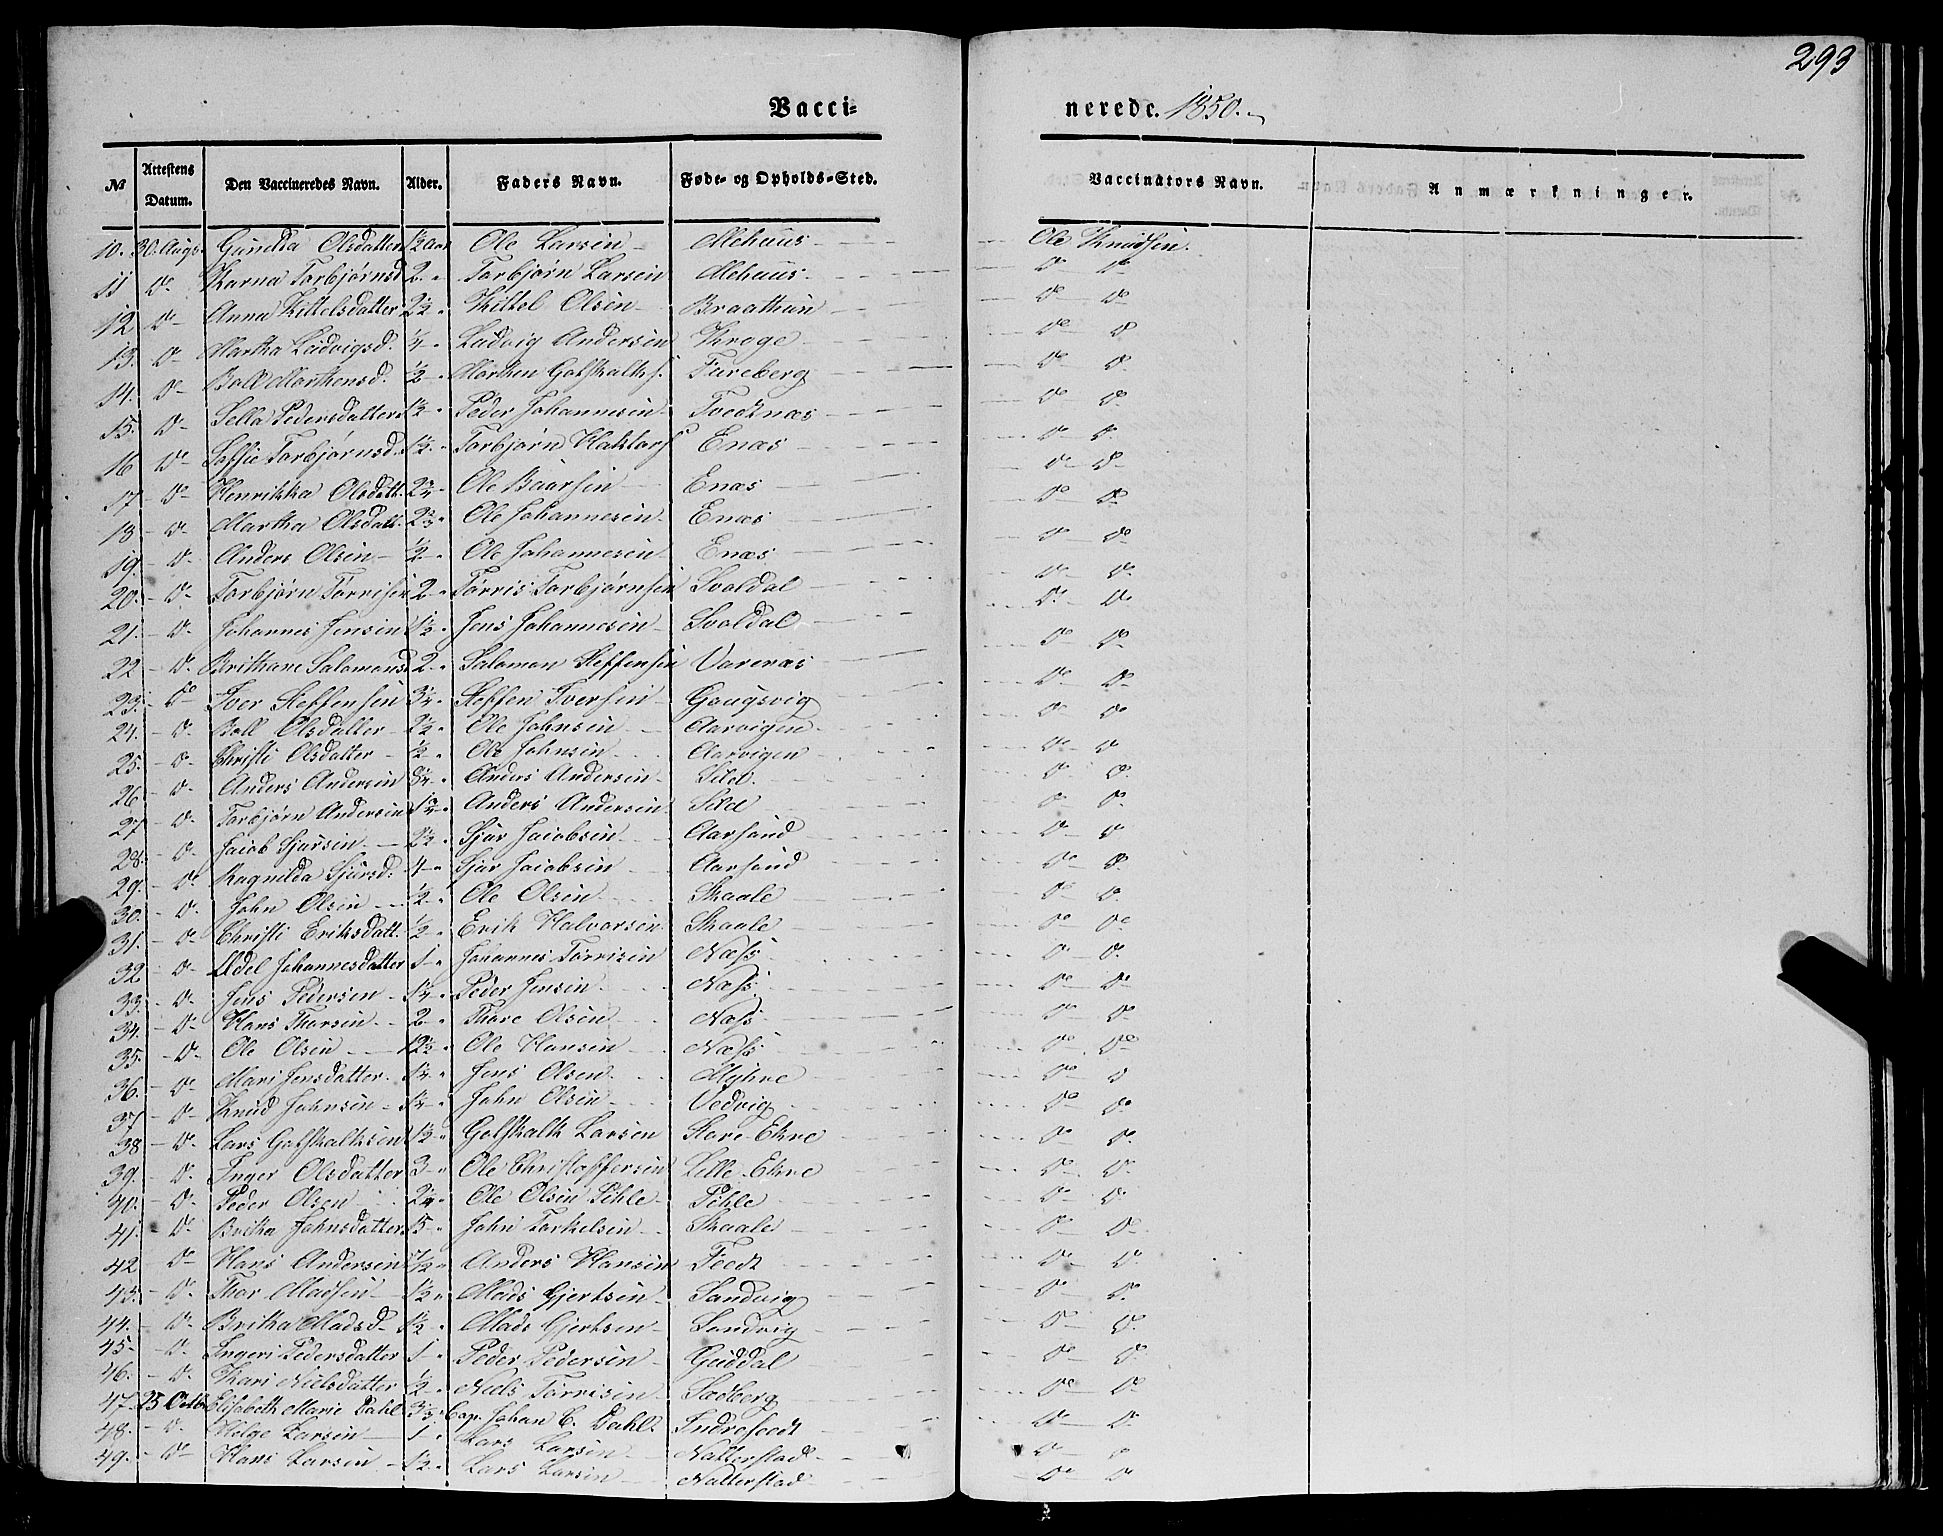 293
Vacci= nerede. 1850.
No Attestens Datum. Den Vaccineredes Navn. Alder. Faders Navn. Føde- og Opholds-Sted. Vaccinators Navn. Anmærkninger.
10. 30. Augs. Gunilda Olsdatter Ole Larsen Mehuus Ole Knudsen.
11 do Torbjørnsd. 2 Torbjørn Larsen Mehuus do do
12 do Anna Kittelsdatter 2½ Kittel Olsen Braathun do do
13. do Martha Ludvigsd. ¼ Ludvig Andersen Kroge do do
14. do Marthensd. ½ Morthen Gotskalks. Fureberg do do
15. do Sella Pedersdatter 1½ Peder Johannesen Tvedtnæs do do
16 do Torbjørnsd. 1½ Torbjørn Enæs do do
17 do Henrikka Olsdatt. 2¾ Ole Baarsen Enæs do do
18 do Martha Olsdatt. Ole Johannesen Enæs do do
19. do Anders Olsen ½ Ole Johannesen Enæs do do
20. do Torbjørn Tørrisen 2 Tørris Torbjørnsen Svoldal do do
21. do Johannes Jensen 1½ Jens Johannesen Svoldal do do
22 do Brithane Salomonsd. 2 Salomon Steffensen Varenæs do do
23. do Iver Steffensen ¾ Steffen Iversen Gaugsvig do do
24. do Olsdatter 2½ Ole Johnsen Aarvigen do do
25. do Christi Olsdatter ½ Ole Johnsen Aarvigen do do
26 do Anders Andersen Anders Andersen do do
27 do Torbjørn Andersen Anders Andersen do do
28. do Jacob Sjursen 2½ Sjur Jacobsen Aarsand do do
29. do Ragnilda Sjursd. 4 Sjur Jacobsen Aarsand do do
30. do John Olsen ½ Ole Olsen Skaale do do
31. do Christi Eriksdatt. ½ Erik Halvorsen Skaale do do
32 do Adel Johannesdatter 1 Johannes Tørrisen Næss do do
33. do Jens Pedersen 1¼ Peder Jensen Næss do do
34. do Hans Thorsen 2 Thore Olsen Næss do do
35. do Ole Olsen 12½ Ole Hansen Næss do do
36. do Mari Jensdatter 1¼ Jens Olsen Myhre do do
37 do Knud Johnsen 1¼ John Olsen Vedvig do do
38 do Lars Gotskalksen 1½ Gotskalk Larsen Store-Ekre do do
39. do Inger Olsdatter 3 Ole Christoffersen Lille-Ekre do do
40. do Peder Olsen 2¼ Ole Olsen Pihle Pihle do do
41. do Britha Johnsdatter 5 John Torkelsen Skaale do do
42 do Hans Andersen 7½ Anders Hansen Feedt do do
43. do Thor Madsen 1½ Mads Gjertsen Sandvig do do
44. do Britha Madsd. 1½ Mads Gjertsen Sandvig do do
45. do Ingeri Pedersdatter 1 Peder Pedersen Guddal do do
46. do Kari Nielsdatter ½ Niels Tørrisen Sædberg do do
47. 25 Octb. Elisabeth Marie Dahl Cap. Johan C. Dahl. Indrefeedt do do
48. do Helge Larsen 1 Lars Larsen Natterstad do do
49. do Hans Larsen ½ Lars Larsen Natterstad do do